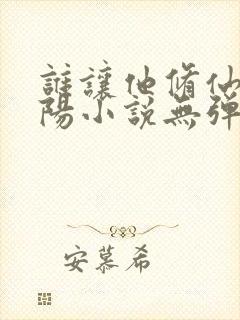 誰讓他脩仙
陽小說無彈
安慕希